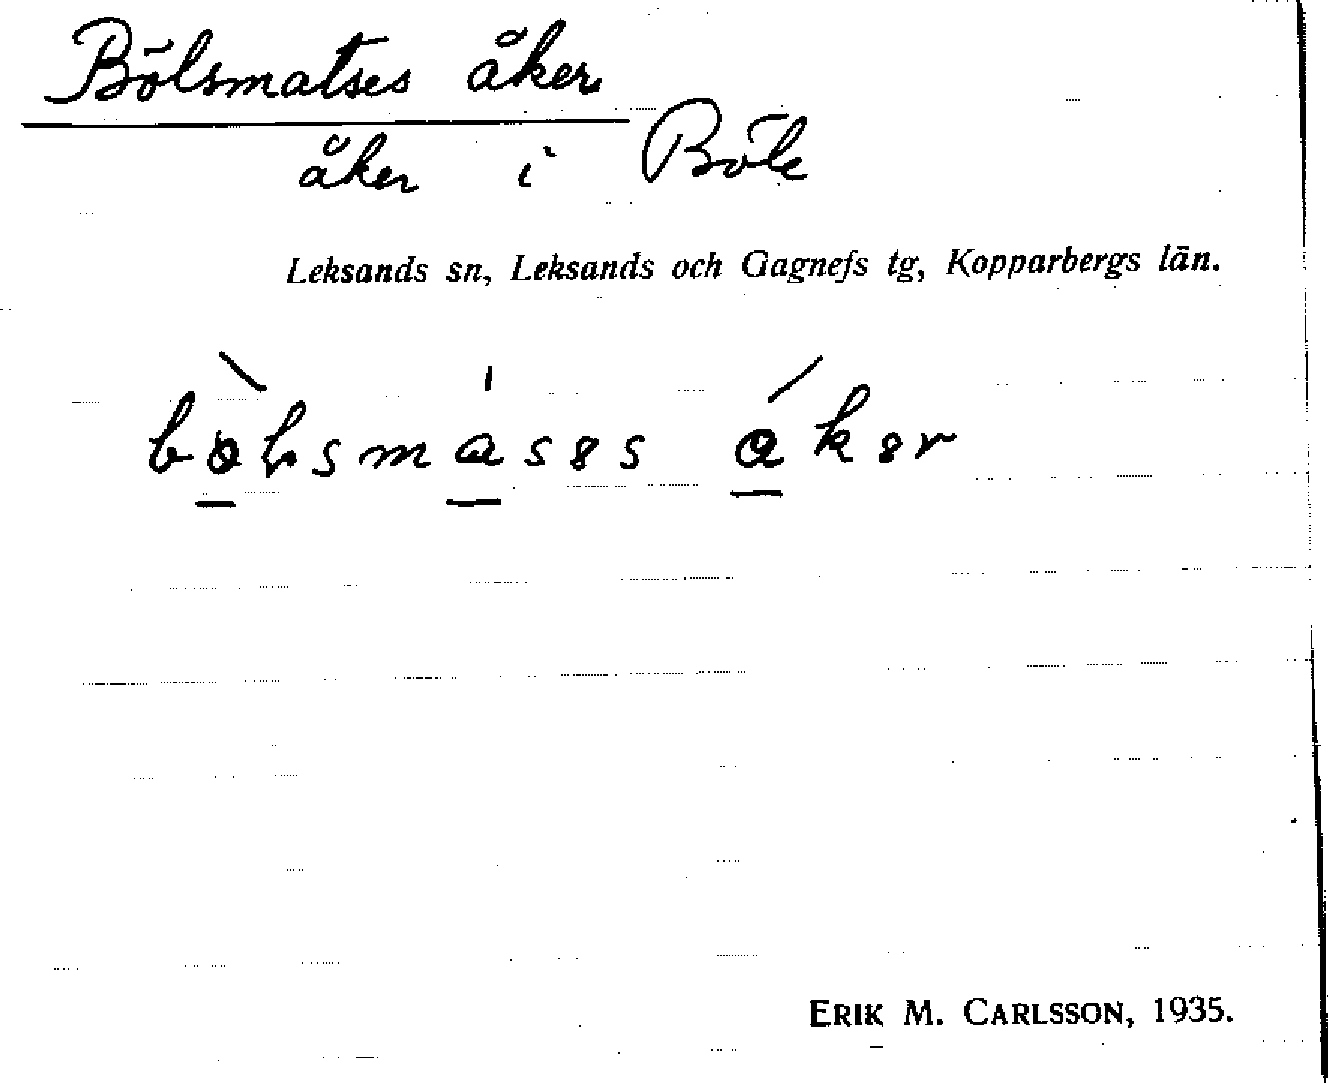 Bölsmatses åker
åker i Böle
Leksands sn, Leksands och Gagnefs tg, Kopparbergs län.
åker
ERIK M. CARLSSON, 1935.